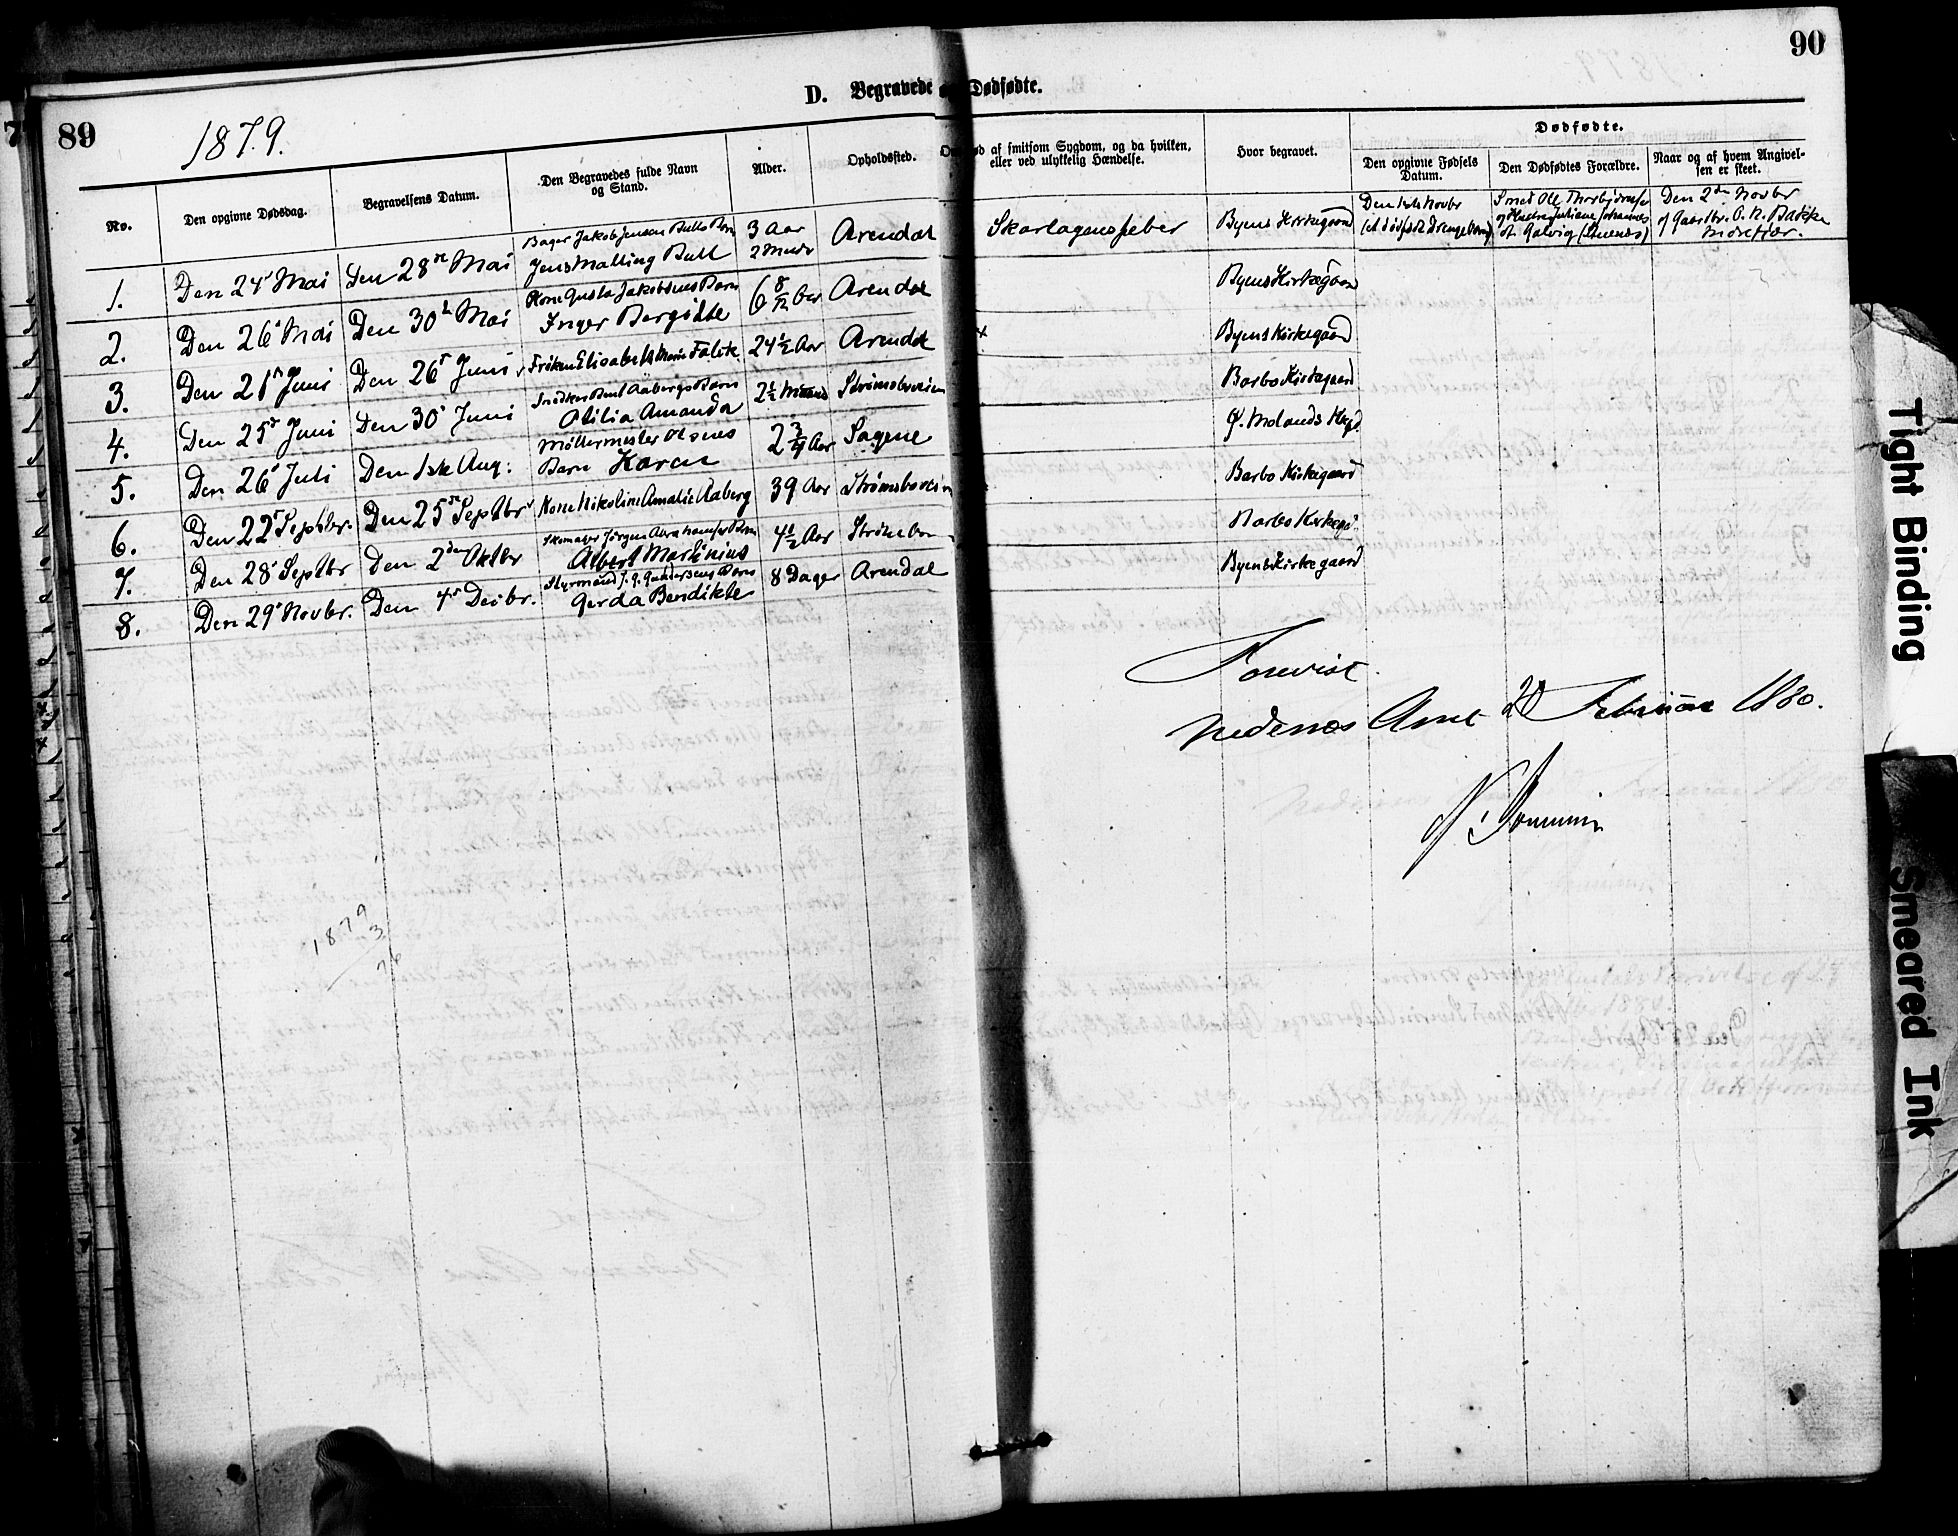 89
90
D. Begravede og Dødfødte.
1879.
No.
Den opgivne Dødsdag.
Begravelsens Datum.
Den Begravedes fulde Navn
og Stand.
Alder.
Opholdssted.
af smitsom Sygdom, og da hvilken,
eller ved ulykkelig Hændelse.
Hvor begravet.
Dødfødte.
Den opgivne Fødsels
Datum.
Den Dødfødtes Forældre.
Naar og af hvem Angivel-
sen er skeet.
1. Den 24 Mai Den 28 Mai Bager Jakob Jensen Bulls Barn
Jens Malling Bull 3 Aar
2 Mndr Arendal Skarlagensfeber Byens Kirkegaard
Den 1ste Novbr
(et dødfødt Drengebarn)
Smed Ole Thorbjørnsen
og Hustru Juliane Johannes
dt. Galvig
Den 2den Novbr
af Gaardbr. O. N. Bakke
2. Den 26 Mai Den 30 Mai Kone Gusta Jakobsens Barn
Inger Bergitte 6 8/12 Aar Arendal Byens Kirkegaard
3. Den 21 Juni Den 26 Juni Frøken Elisabeth Marie Falck 24 1/2 Aar Arendal Byens Kirkegaard
4. Den 25 Juni Den 30 Juni Snedker Bent Aabergs Barn
Otilia Amanda 2 1/2 Maaned Strømsbo Barbo Kirkegaard
5. Den 26 Juli Den 1ste Aug: Møllermester Olsens
Barn Karen 2 3/4 Aar Sagene Ø. Molands Kkgd.
6. Den 22 Septbr. Den 25 Septbr Kone Nikoline Amalie Aaberg 39 Aar Strømsbo Barbo Kirkegaard
7. Den 28 Septbr Den 2den Oktbr Skomager Jørgen Abrahamsens Barn
Albert Martinius 4 1/2 Aar Strømsbo Barbo Kirkegd.
8. Den 29 Novbr. Den 4 Decbr. Styrmand J. G. Gundersens Barn
Gerda Bendikte 8 Dager Arendal Byens Kirkegaard
Forevist.
Nedenes Amt 20 Februar 1880.
1879
3
Tight Binding
Smeared Ink